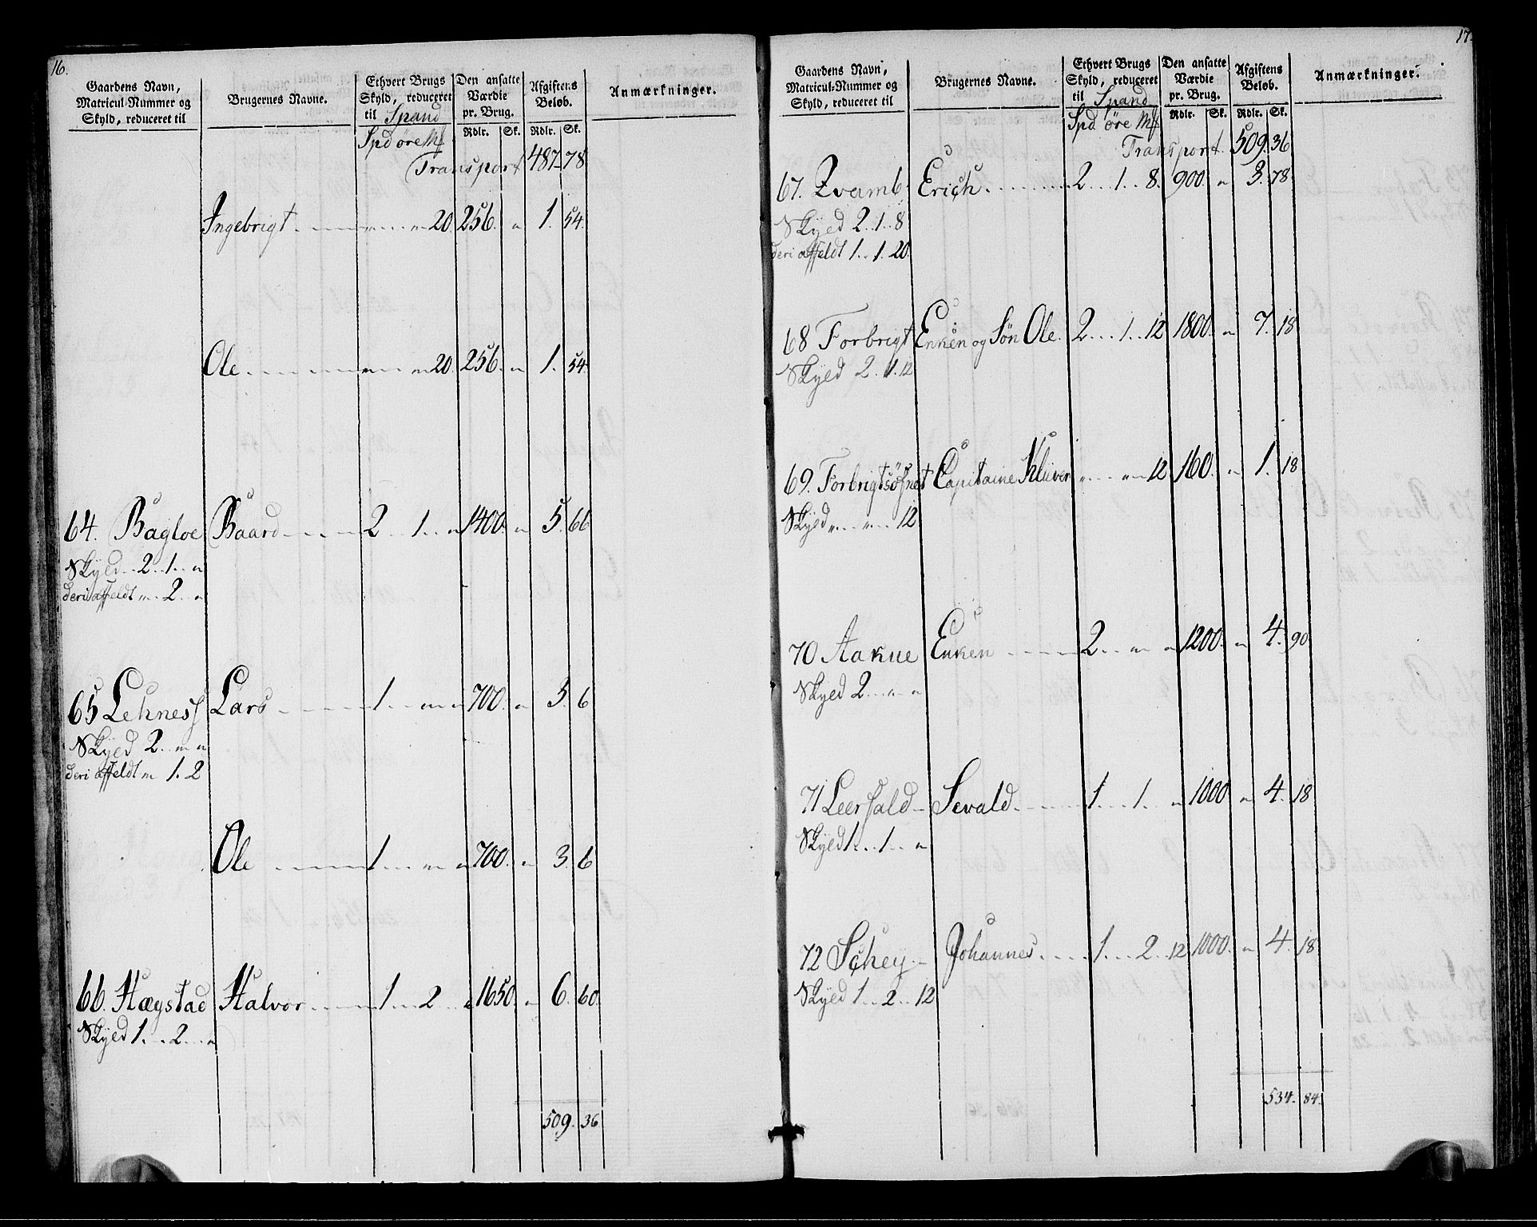 16.
Gaardens Navn, Matricul-Nummer og Skyld, reduceret til
Brugernes Navne.
Ethvert Brugs Skyld, reduceret til Spand
Spd øre Mk
Den ansatte Værdie pr. Brug.
Rdlr. Sk.
Afgiftens Beløb.
Rdlr. Sk.
Anmærkninger.
Transport 487 78
Ingebrigt 20 256 " 1 54
Ole 20 256 " 1 54
64. Bagloe Baard 2 1 " 1400 " 5 66
Skyld 2 1 "
deri affeldt " 2 "
65 Lehness Lars 1 " " 700 " 3 6
Skyed 2 " "
deri affeldt " 1 2
Ole 1 " " 700 " 3 6
66. Hægstad Halvor 1 2 " 1650 " 6 60
Skyed 1 2 "
509 36
17
Gaardens Navn, Matricul-Nummer og Skyld, reduceret til
Brugernes Navne.
Ethvert Brugs Skyld, reduceret til Spand
Spd øre Mk
Den ansatte Værdie pr. Brug.
Rdlr. Sk.
Afgiftens Beløb.
Rdlr. Sk.
Anmærkninger.
Transport 509 36
67. Qvamb Erich 2 1 8 900 " 3 78
Skyed 2 1 8
deri affeldt 1 1 20
68 Forbrigt Enken og Søn Ole 2 1 12 1800 " 7 18
Skyed 2 1 12
69. Forbrigtsøfnet Capitaine Klüver " " 12 160 " 1 18
Skyed " " 12
70 Aakue Enken 2 " " 1200 " 4 90
Skyed 2 " "
71 Leersald Sevald 1 1 " 1000 " 4 18
Skyed 1 1 "
72 Schey Johannes 1 2 12 1000 " 4 18
Skyed 1 2 12
534 84